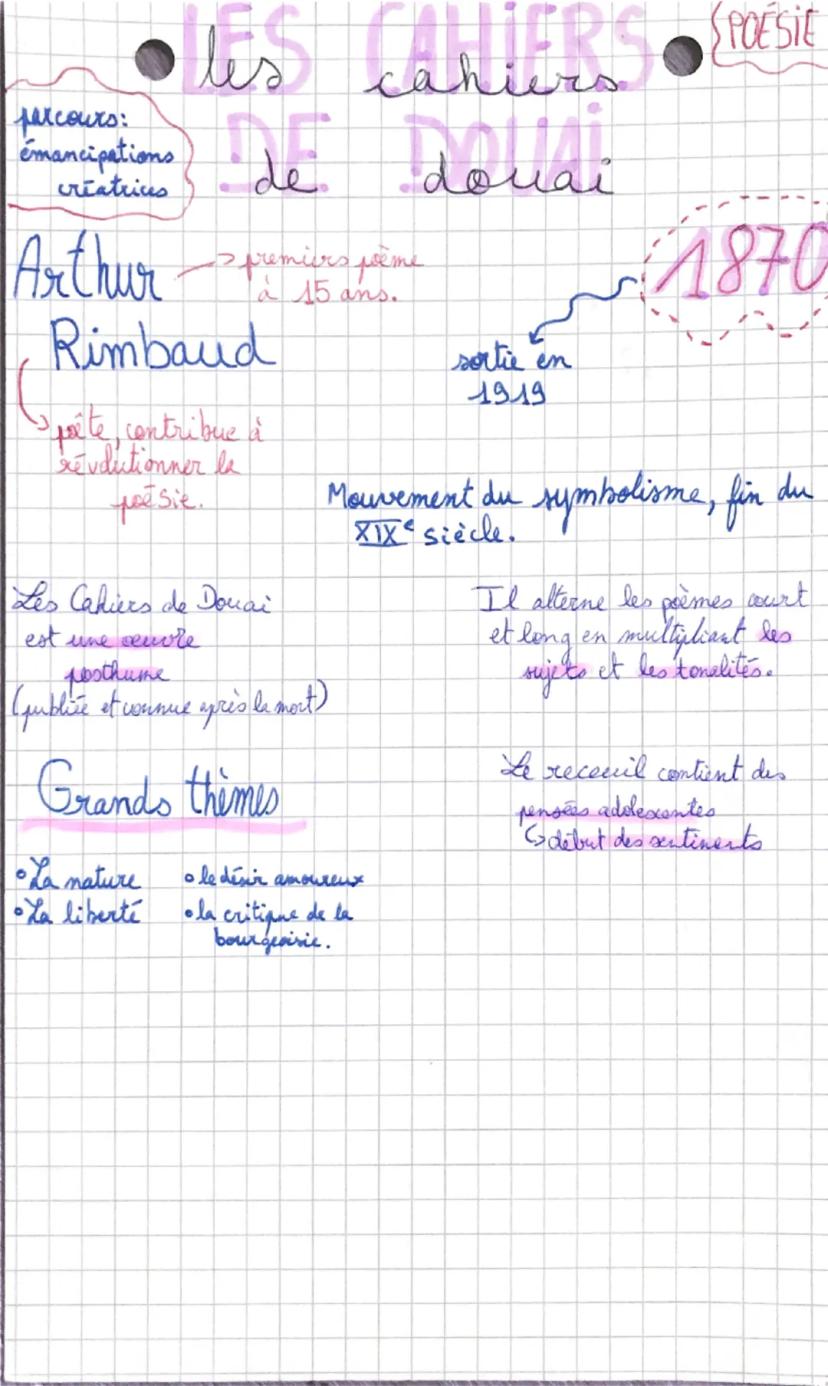 POÉSIE
LES CAHIERS
les cahiers
DE DOUAI
de douai
parcours:
émancipations
créatrices
Arthur
Rimbaud
premiers poème
à 15 ans.
1870
sortie en
1919
poête, contribue à
révolutionner la
poésie.
Mouvement du symbolisme, fin du
XIXe siècle.
Les Cahiers de Douai
est une œuvre
posthume
(publiée et connue après la mort)
Il alterne les poèmes court
et long en multipliant les
sujets et les tonalités.
Le receuil contient des
pensées adolexentes
début des sentiments
Grands thèmes
• La nature
• La liberté
• le désir amoureux
• la critique de la
bourgeoisie.